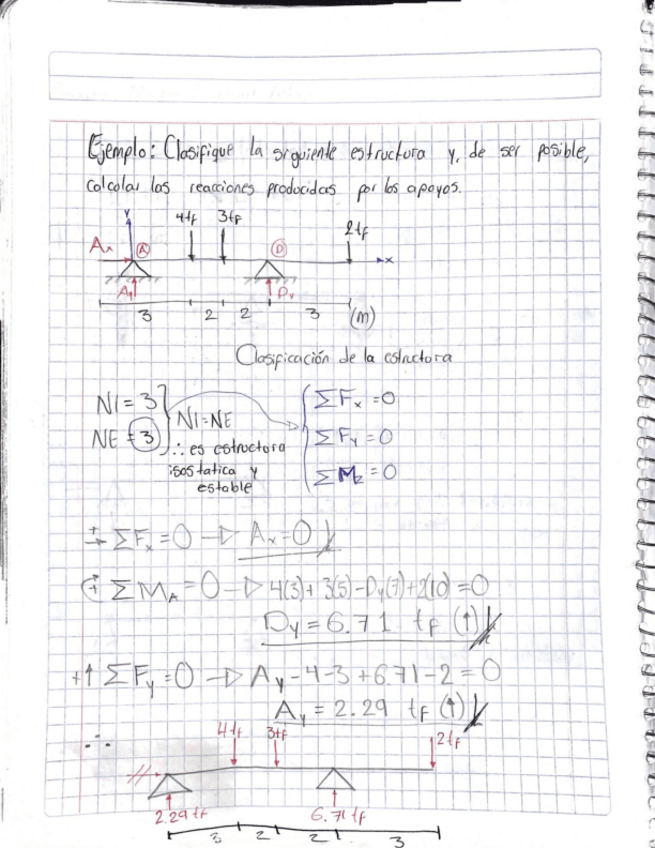 Ejemplo: Clasifique la siguiente estructura y, de ser posible,
calcular las reacciones producidas por los apoyos.
Y 4tf 3tf 2tf
Ax A D x
Ay Dy
3 2 2 3 (m)
Clasificación de la estructura
NI = 3
NE = 3
NI = NE
∴ es estructura
isostatica y
estable
ΣFx = 0
ΣFy = 0
ΣMz = 0
+→ ΣFx = 0 → Ax = 0
+ ΣMA = 0 → 4(3) + 3(5) - Dy(7) + 2(10) = 0
Dy = 6.71 tf (↑)
+↑ ΣFy = 0 → Ay - 4 - 3 + 6.71 - 2 = 0
Ay = 2.29 tf (↑)
∴ 4tf 3tf 2tf
2.29 tf 6.71 tf
3 2 2 3